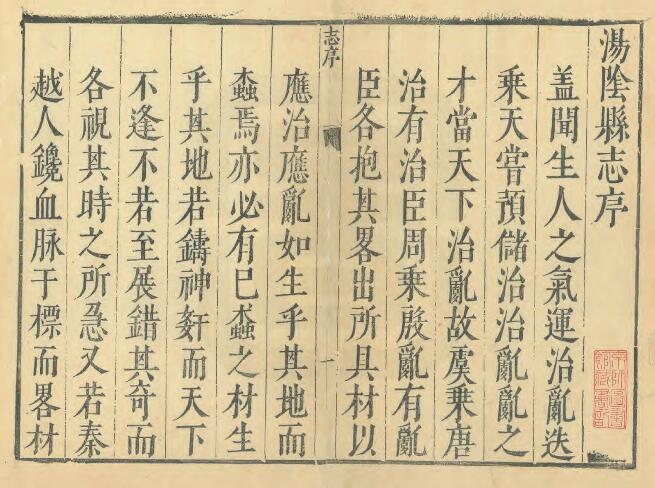 湯陰縣志序
盖聞生人之氣運治亂迭
乘天嘗預儲治治亂亂之
才當天下治亂故虞乗唐
治有治臣周乗殷亂有亂
臣各抱其畧出所具材以
志序
一
應治應亂如生乎其地而
螙焉亦必有巳螙之材生
乎其地若鑄神姧而天下
不逢不若至展錯其竒而
各視其時之所急又若秦
越人鑱血脉于標而畧材